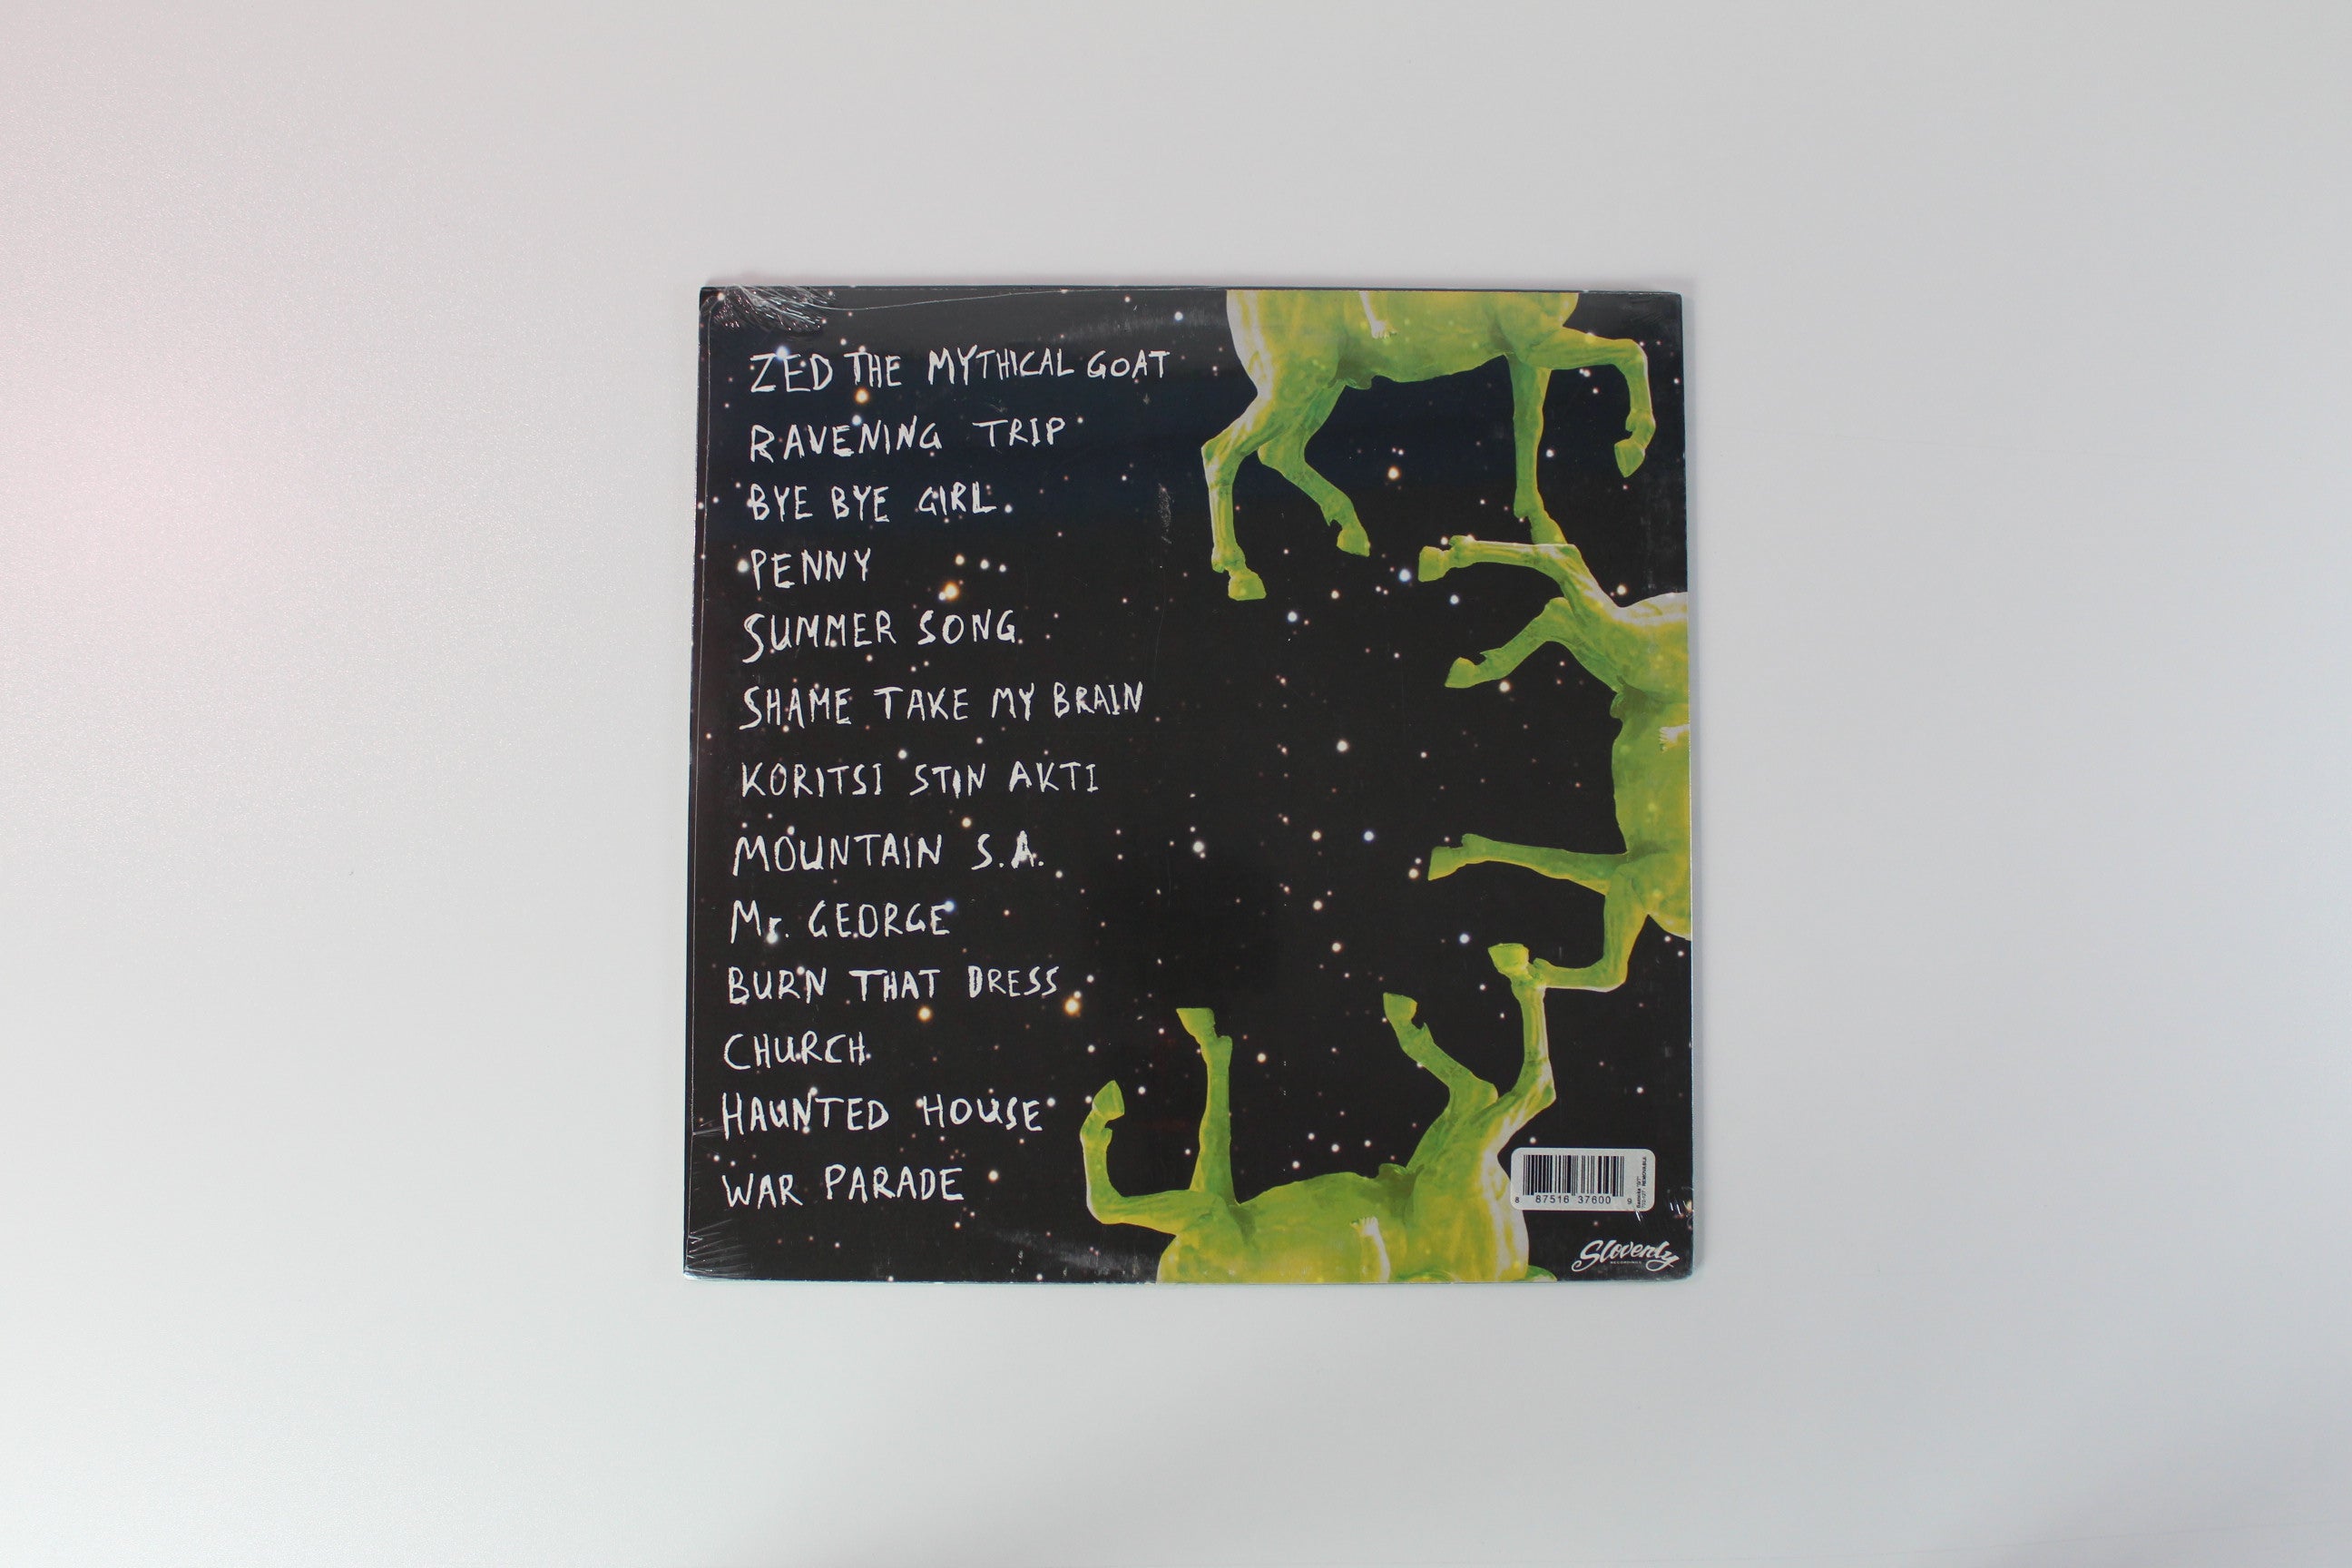 ZED THE MYTHICAL GOAT
RAVENING TRIP
BYE BYE GIRL
PENNY
SUMMER SONG
SHAME TAKE MY BRAIN
KORITSI STIN AKTI
MOUNTAIN S.A.
Mr. GEORGE
BURN THAT DRESS
CHURCH
HAUNTED HOUSE
WAR PARADE
8 87516 37600
REMOVABLE
Slovenly
RECORDINGS